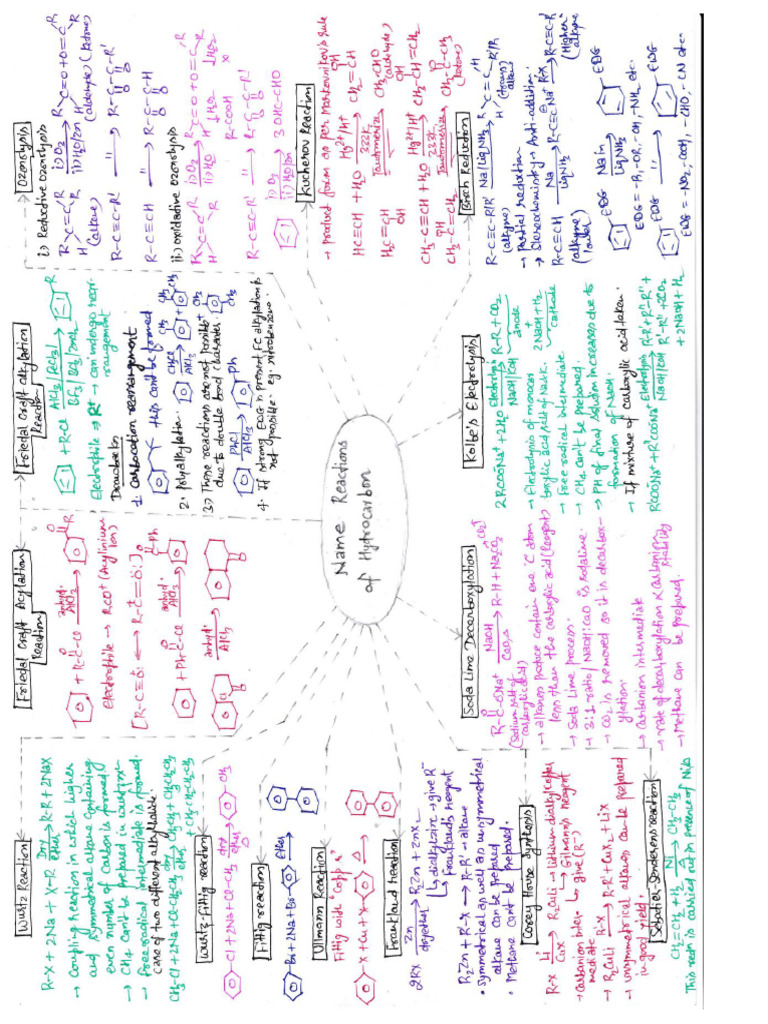 Name Reactions
of Hydrocarbon
Wurtz Reaction
R-X + 2Na + X-R Dry ether → R-R + 2NaX
→ Coupling reaction in which higher
and symmetrical alkane containing
even number of carbon is formed.
→ CH4 can't be prepared in wurtz rxn.
→ Free radical intermediate is formed.
case of two different alkylhalide.
CH3-Cl + 2Na + Cl-CH2CH3 dry ether → CH3CH3 + CH3CH2CH3
+ CH3-CH2-CH2-CH3
Wurtz-fittig reaction
-Cl + 2Na + Cl-CH3 dry ether → -CH3
Fittig reaction
-Br + 2Na + Br- ether →
Ullmann Reaction
Fittig with "Copper"
-X + Cu + X- Δ →
Frankland reaction
2RX Zn → R2Zn + ZnX2
↳ dialkylzinc → give R⁻
Frankland's reagent
R2Zn + R'-X → R-R' → alkane
• symmetrical as well as unsymmetrical
alkane can be prepared
• Methane can't be prepared.
Corey House Synthesis
R-X Li CuX → R2CuLi → Lithium dialkyl
↳ Gilmann's Reagent
→ carbanion inter- ↳ give (R⁻)
mediate
→ R2CuLi R'-X → R-R' + CuX + LiX
→ unsymmetrical alkanes can be prepared
in good yield.
Sabatier-Senderens reaction
CH2=CH2 + H2 Ni Δ → CH3-CH3
This rxn is carried out in presence of Ni
Friedal Craft Acylation
Reaction
+ R-C-Cl anhyd. AlCl3 →
O
R
Electrophile → RCO⁺ (Acylinium
ion)
[R-C≡O: ↔ R-C=O:]
+ Ph-C-Cl anhyd. AlCl3 →
O
C-Ph
anhyd. AlCl3 →
Soda Lime Decarboxylation
R-C-ONa⁺ NaOH CaO,Δ → R-H + Na2CO3
(Sodium salt of
carboxylic acid)
→ alkanes produce contain one 'C' atom
less than the carboxylic acid (Reagent)
→ Soda Lime process.
→ 3:1 ratio / NaOH:CaO is sodalime.
→ CO2 is removed so it is decarbox-
ylation.
→ Carbanion intermediate
→ rate of decarboxylation ∝ carbanion
stability
→ Methane can be prepared.
Friedal Craft alkylation
Reaction
+ R-Cl AlCl3/FeCl3/ → R
Electrophile → R⁺ → can undergo rearr-
rangement
Drawbacks
1. Carbocation rearrangement
this can't be formed
2. Polyalkylation.
CH3Cl AlCl3 →
CH3
3.) These reactions are not possible
due to double bond character.
PhCl AlCl3 → Ph
4. if strong EDG is present, FC alkylation is
not possible. eg. nitrobenzene.
Kolbe's Electrolysis
2RCOONa + 2H2O Electrolysis → R-R + CO2 + 2NaOH + H2
NaOH/KOH
anode
cathode
→ Electrolysis of monocar-
boxylic acid/salt of Na or K.
→ Free radical intermediate
→ CH4 can't be prepared.
→ PH of final solution increases due to
formation of NaOH.
→ If mixture of carboxylic acid taken.
RCOONa + R'COONa Electrolysis NaOH/KOH → R-R + R'-R' +
R'-R'' + 2CO2
+ 2NaOH + H2
Ozonolysis
i) Reductive ozonolysis
R C=C R i) O3 ii) H2O/Zn → R C=O + O=C R
H H
(alkene)
(aldehyde) (ketone)
R-C≡C-R' " → R-C-C-R'
O O
R-C≡CH " → R-C-C-H
O O
ii.) oxidative ozonolysis
R C=C R i) O3 ii) H2O → R C=O + O=C R
H
R-COOH
R-C≡C-R' " → R-C-C-R'
O O
i) O3 ii) H2O/Zn → 3 OHC-CHO
Kucherov Reaction
→ product form as per Markovnikov's rule
HC≡CH + H2O Hg²⁺/H⁺ 333K → CH2=CH
OH
HC=CH Tautomerize → CH3-CHO
OH
(aldehyde)
CH3-C≡CH + H2O Hg²⁺/H⁺ 333K → CH3-C=CH2
OH
CH3-C=CH2 Tautomerize → CH3-C-CH3
OH
O
(ketone)
Birch Reduction
R-C≡C-R/R' Na/Liq NH3 → R C=C R/R'
H
(alkyne)
(trans)
alkene
→ Partial reduction
→ Stereochemistry - Anti-addition.
R-C≡CH Na Liq NH3 → R-C≡C⁻Na⁺ R-X → R-C≡C-R
(alkyne
1 outer)
(Higher
alkyne)
EDG Na in Liq NH3 → EDG
EDG = -R, -OR, -OH, -NH2 etc.
EDG " → EDG
EDG = -NO2, -COOH, -CHO, -CN etc.